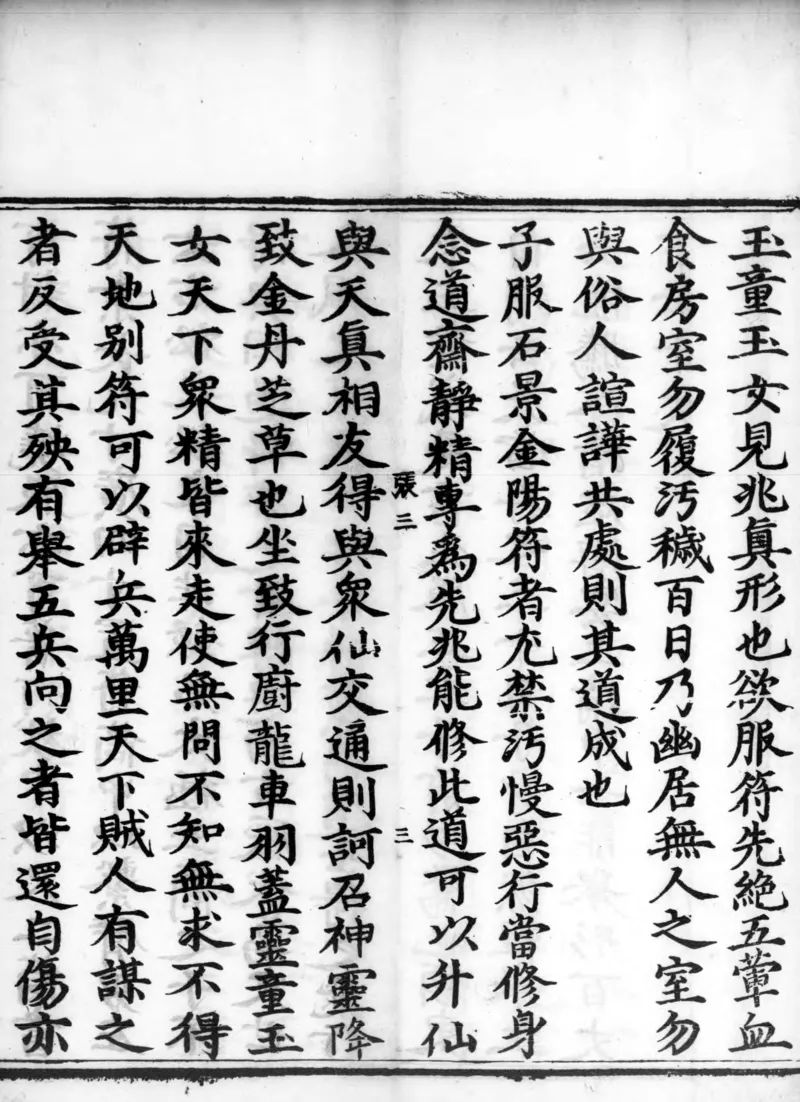 玉童玉女見兆真形也欲服符先絶五葷血
食房室勿履汚穢百日乃幽居無人之室勿
與俗人諠譁共處則其道成也
子服石景金陽符者尤禁汚慢惡行當修身
念道齋靜精專爲先兆能修此道可以升仙
張三 三
與天真相友得與衆仙交通則訶召神靈降
致金丹芝草也坐致行廚龍車羽蓋靈童玉
女天下衆精皆來走使無問不知無求不得
天地别符可以辟兵萬里天下賊人有謀之
者反受其殃有舉五兵向之者皆還自傷亦